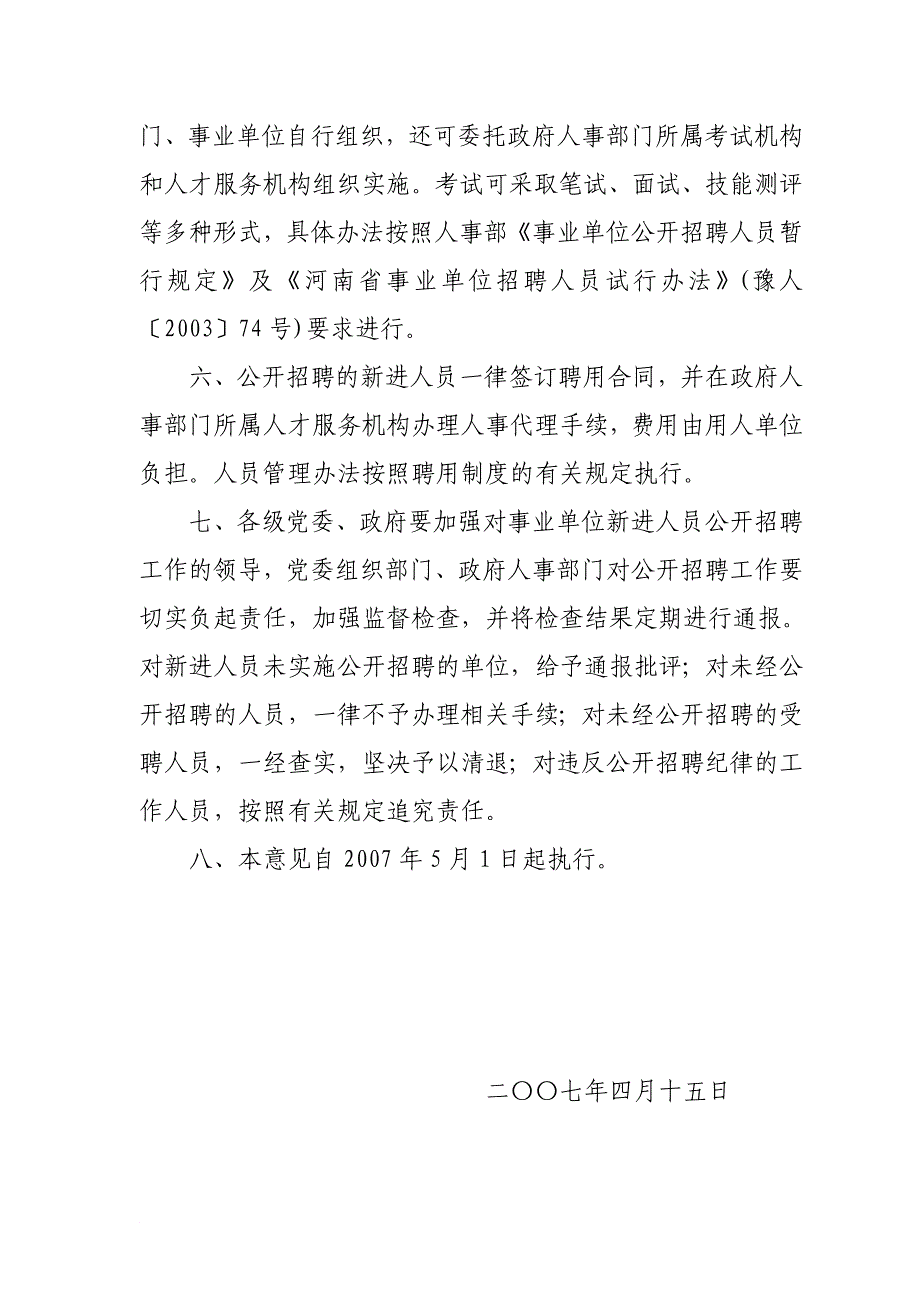 门、事业单位自行组织，还可委托政府人事部门所属考试机构
和人才服务机构组织实施。考试可采取笔试、面试、技能测评
等多种形式，具体办法按照人事部《事业单位公开招聘人员暂
行规定》及《河南省事业单位招聘人员试行办法》(豫人
〔2003〕74 号)要求进行。
六、公开招聘的新进人员一律签订聘用合同，并在政府人
事部门所属人才服务机构办理人事代理手续，费用由用人单位
负担。人员管理办法按照聘用制度的有关规定执行。
七、各级党委、政府要加强对事业单位新进人员公开招聘
工作的领导，党委组织部门、政府人事部门对公开招聘工作要
切实负起责任，加强监督检查，并将检查结果定期进行通报。
对新进人员未实施公开招聘的单位，给予通报批评；对未经公
开招聘的人员，一律不予办理相关手续；对未经公开招聘的受
聘人员，一经查实，坚决予以清退；对违反公开招聘纪律的工
作人员，按照有关规定追究责任。
八、本意见自 2007 年 5 月 1 日起执行。
二〇〇七年四月十五日